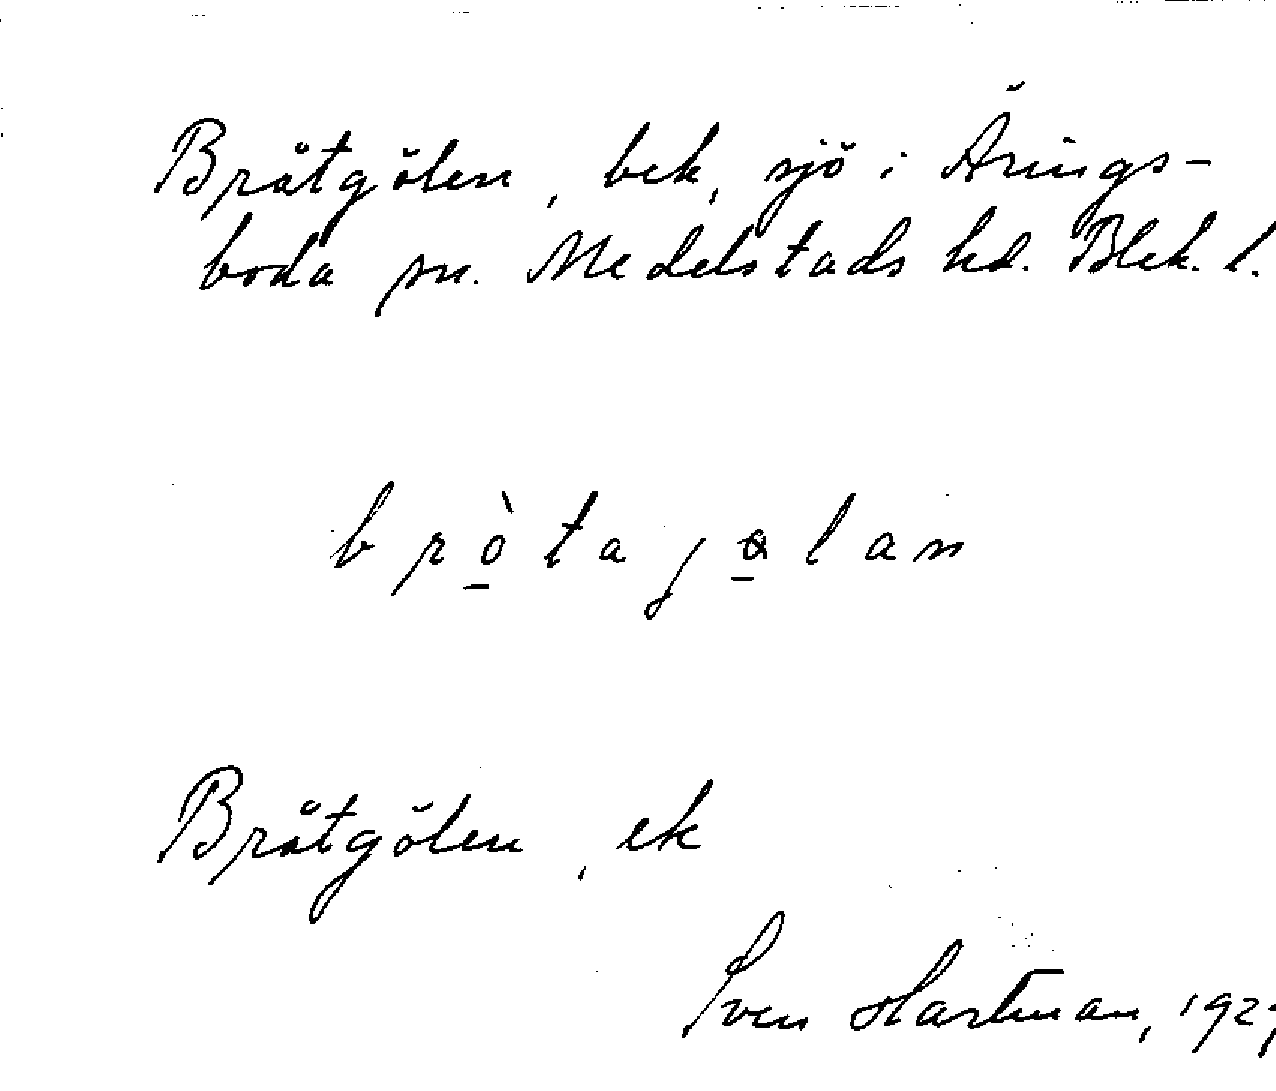 Bråtgölen, bek, sjö i Ärings-
boda sn. Medelstads hd. Blek. l.
bròtagølan
Bråtgölen, ek
Sven Hartman,